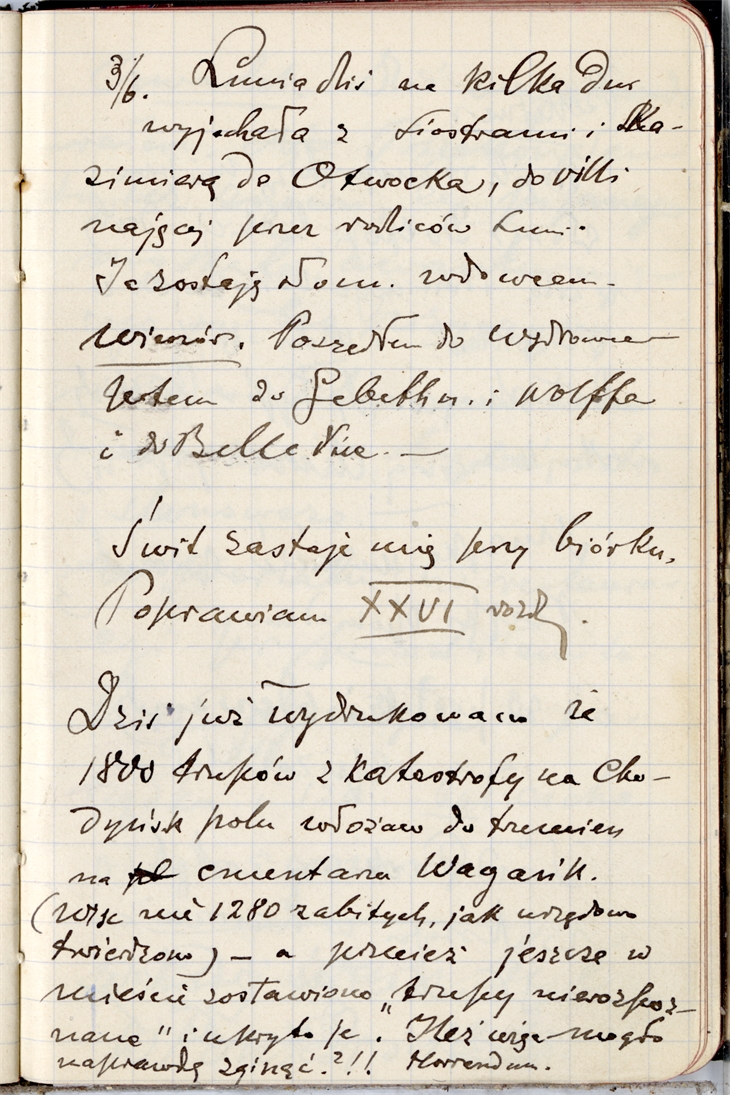 3/6. Lunia dziś na kilka dni
wyjechała z siostrami i Ka-
zimierą do Otwocka, do villi
najętej przez rodziców Luni.
Ja zostaję słom. wdowcem.
Wieczór. Poszedłem do Wydawnic
potem do Gebethn. i Wolffa
i do Belle Vue. —
Świt zastaje mię przy biórku.
Poprawiam XXVI rozdz.
Dziś już wydrukowano że
1800 trupów z katastrofy na Cho-
dyńsk polu włożono do trumien
na cmentarzu Wagańk.
(więc nie 1280 zabitych, jak urzędowo
twierdzono) — a przecież jeszcze w
mieście zostawiono „trupy nierozpoz-
nane" i ukryto je. Ileż więc mogło
naprawdę zginąć.?!! Horrendum.